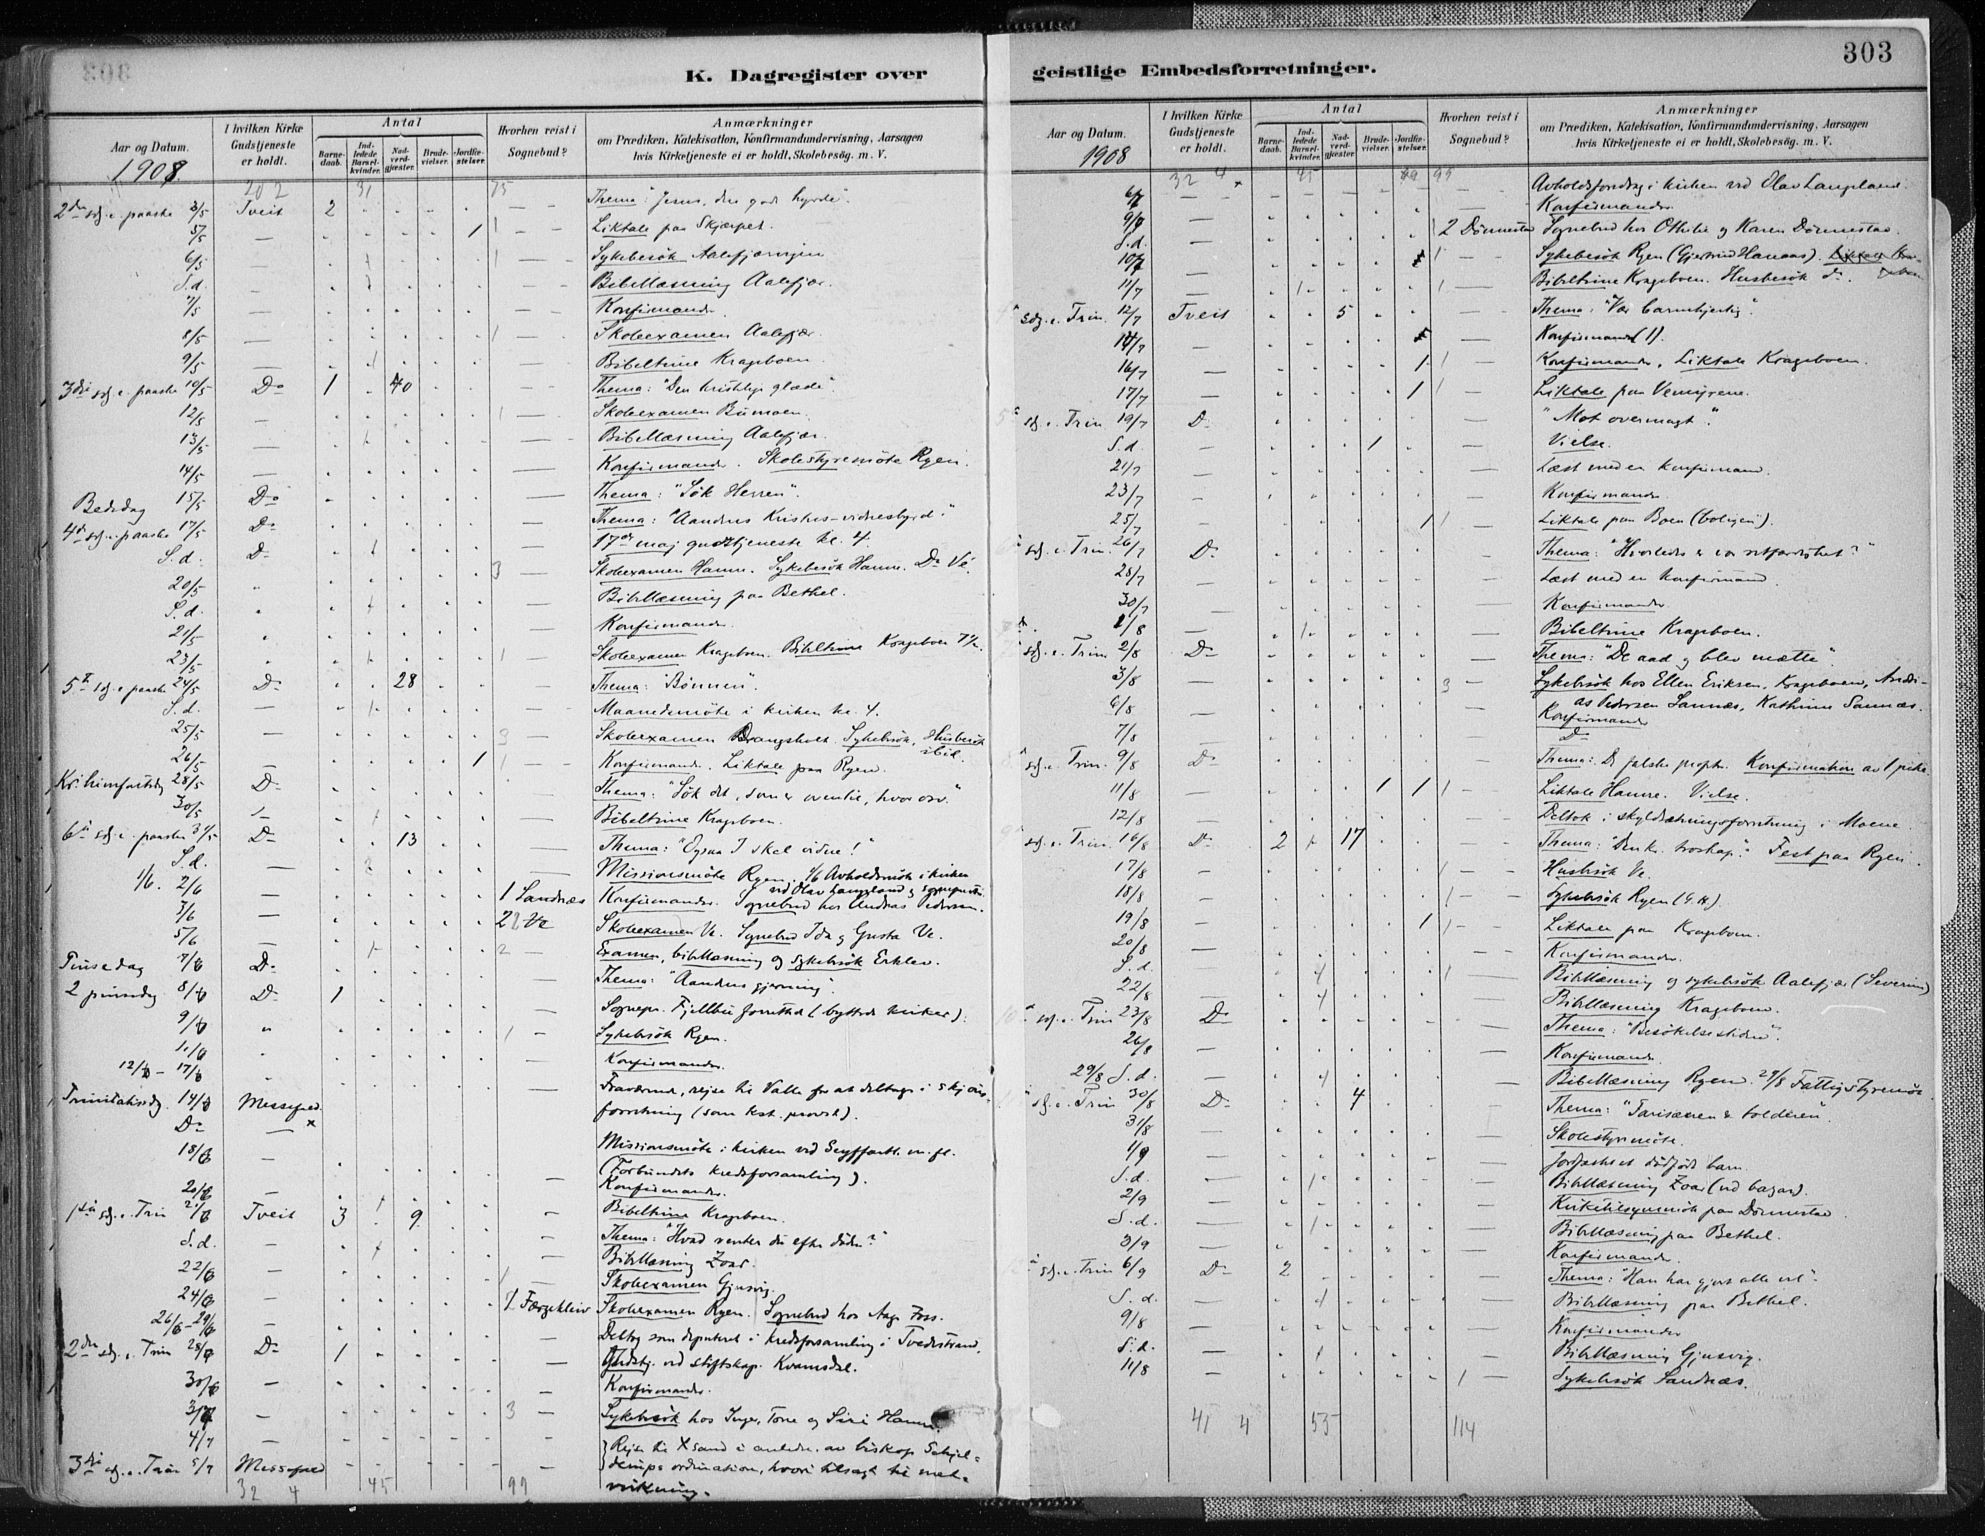 303
K. Dagregister over
geistlige Embedsforretninger.
Aar og Datum. 1908.
I hvilken Kirke Gudstjeneste er holdt.
Antal
Barnedaab.
Indledede Barselkvinder.
Nadverdgjæster.
Brudevielser.
Jordfæstelser.
Hvorhen reist i Sognebud?
Anmærkninger
om Prædiken, Katekisation, Konfirmandundervisning, Aarsagen
hvis Kirketjeneste ei er holdt, Skolebesøg. m. V.
20 2 31 75
2den sdg. e. paaske 3/5 Tveit 2 Thema: "Jesus, den gode hyrde".
5/5 — 1 1 — Liktale paa Skjærpet.
6/5 — 1 — Sykebesök Aalefjærveien
S.d. — Bibellæsning Aalefjær.
7/5 — Konfirmander.
8/5 — 1 — Skoleexamen Aalefjær.
9/5 — Bibeltime Krageboen.
3die sdg. e. paaske 10/5 Do 1 40 Thema: "Den kristelige glæde"
12/5 — 1 — Skoleexamen Bumoen.
13/5 — Bibellæsning Aalefjær.
14/5 — Konfirmander. Skolestyremöte Ryen.
Bededag 15/5 Do Thema: "Søk Herren".
4de sdg. e. paaske 17/5 Do Thema: "Aandens Kristus-vidnesbyrd."
S.d. Do 17de maj gudstjeneste kl. 4.
20/5 3 Skoleexamen Hamre. Sykebesök Hamre. Do Ve.
S.d. Bibellæsning paa Bethel.
21/5 Konfirmander.
23/5 1 — Skoleexamen Krageboen. Bibeltime Krageboen 7½.
5te sdg. e. paaske 24/5 Do 28 Thema: "Bönnen".
S.d. — Maanedsmöte i kirken kl. 4.
25/5 — 3 Skoleexamen Drangsholt. Sykebesök, Husbesök ibid.
26/5 — 1 1 — Konfirmander. Liktale paa Ryen.
Kr. himmelfartsdg 28/5 Do Thema: "Søk det, som er oventil, hvor osv."
30/5 — Bibeltime Krageboen.
6te sdg. e. paaske 31/5 Do 13 Thema: "Ogsaa I skal vidne!"
S.d. — Missionsmöte Ryen. 1/6 Avholdsmöte i kirken
1/6. 2/6 — 1 Sandnæs Konfirmander. Sognebud hos Andreas Pedersen.
3/6 — 2 Ve Skoleexamen Ve. Sognebud Ida og Gusta Ve.
5/6 — 2 — Examen, bibellæsning og sykebesök Erklev.
Pinsedag 7/6 Do Thema: "Aandens gjerning".
2 pinsedg 8/6 Do 1 Sognepr. Fjellbu forrettet (byttede kirker).
9/6 1 — Sykebesök Ryen.
11/6 Konfirmander.
12/6 – 17/6 Fraværende, reise til Valle for at deltage i skjöns-
Trinitatisdg. 14/6 Messefred forretning (som kst. provst).
Do — x Missionsmöte i kirken ved Seyffarth m. fl.
18/6 (Forbundets kredsforsamling).
Konfirmander.
20/6 — Bibeltime Krageboen.
1ste sdg. e. Trin 21/6 Tveit 3 9 Thema: "Hvad venter du efter döden?"
S.d. — Bibellæsning Zoar.
22/6 — 1 — Skoleexamen Gjusvig.
24/6 — 1 Skoleexamen Ryen. Sognebud hos Aage Foss.
26/6 – 29/6 — Deltog som deputeret i kredsforsamling i Tvedestrand.
2den sdg. e. Trin 28/6 Do 1 Gudstj. ved stiftskap. Kvamsdal.
30/6 — Konfirmander.
3/7 — 3 — Sykebesök hos Inger, Tone og Siri Hamre
4/7 — Reise til Xsand i anledn. av biskop Schjel-
3die sdg. e. Trin 5/7 Messefred derups ordination, hvori tilsagt til med-
virkning.
32 4 45 99
Aar og Datum. 1908
I hvilken Kirke Gudstjeneste er holdt.
Antal
Barnedaab.
Indledede Barselkvinder.
Nadverdgjæster.
Brudevielser.
Jordfæstelser.
Hvorhen reist i Sognebud?
Anmærkninger
om Prædiken, Katekisation, Konfirmandundervisning, Aarsagen
hvis Kirketjeneste ei er holdt, Skolebesøg. m. V.
32 4 45 99
6/7 — Avholdsforedrag i kirken ved Olav Langeland.
9/7 — Konfirmander
S.d. — 2 Dönnestad Sognebud hos Othilie og Karen Dönnestad.
10/7 — 1 — Sykebesök Ryen (Gjertrud Hanaas).
11/7 — 1 — Bibeltime Krageboen. Husbesök do.
sdg. e. Trin. 12/7 Tveit 5 Thema: "Vær barmhjertig".
14/7 — Konfirmand (1).
16/7 — 1 1 — Konfirmander. Liktale Krageboen.
17/7 — 1 1 — Liktale paa Vemyrene.
5te sdg. e. Trin 19/7 Do "Mot overmagt".
S.d. — 1 Vielse.
21/7 — Læst med en konfirmand.
23/7 — Konfirmander
25/7 — 1 1 — Liktale paa Boen (boligen).
sdg. e. Trin. 26/7 Do Thema: "Hvorledes er vor retfærdighet?"
28/7 Læst med en konfirmand.
30/7 — Konfirmander.
1/8 — Bibeltime Krageboen.
sdg. e. Trin 2/8 Do Thema: "De aad og blev mætte".
3/8 3 — Sykebesök hos Ellen Eriksen, Krageboen, Andre-
as Pedersen Sannæs, Kathrine Sannæs.
6/8 Konfirmander
7/8 Do
sdg. e. Trin. 9/8 Do Thema: De falske profeter. Konfirmation av 1 pike
11/8 1 1 1 — Liktale Hamre. Vielse.
12/8 Deltok i skyldsætningsforretning i Moene.
9de sdg. e. Trin. 16/8 Do 2 17 Thema: "Den kr. troskap". Fest paa Ryen.
17/8 — 1 — Husbesök Ve.
18/8 — 1 — Sykebesök Ryen (G.H.).
19/8 — 1 1 — Liktale paa Krageboen.
20/8 — Konfirmander.
S.d. — 1 Bibellæsning og sykebesök Aalefjær (Severine)
22/8 — Bibellæsning Krageboen.
sdg. e. Trin 23/8 Do Thema: "Besökelsestiden".
26/8 — Konfirmander.
29/8 S.d. — Bibellæsning Ryen. 29/8 Fattigstyremöte
sdg. e. Trin 30/8 Do 4 Thema: "Farisæeren & tolderen".
31/8 — Skolestyremöte.
1/9 — Jordfæstet dödfödt barn.
S.d. — Bibellæsning Zoar (ved bazar).
2/9 — Kirketilsynsmöte paa Dönnestad.
S.d. — Bibellæsning paa Bethel.
3/9 — Konfirmander
sdg. e. Trin 6/9 Do 2 Thema: "Han har gjort alle vel".
S.d. — Bibellæsning paa Bethel.
9/8 — Konfirmander
S.d. — Bibellæsning Gjusvig.
11/8 — 1 — Sykebesök Sandnæs.
41 4 55 114